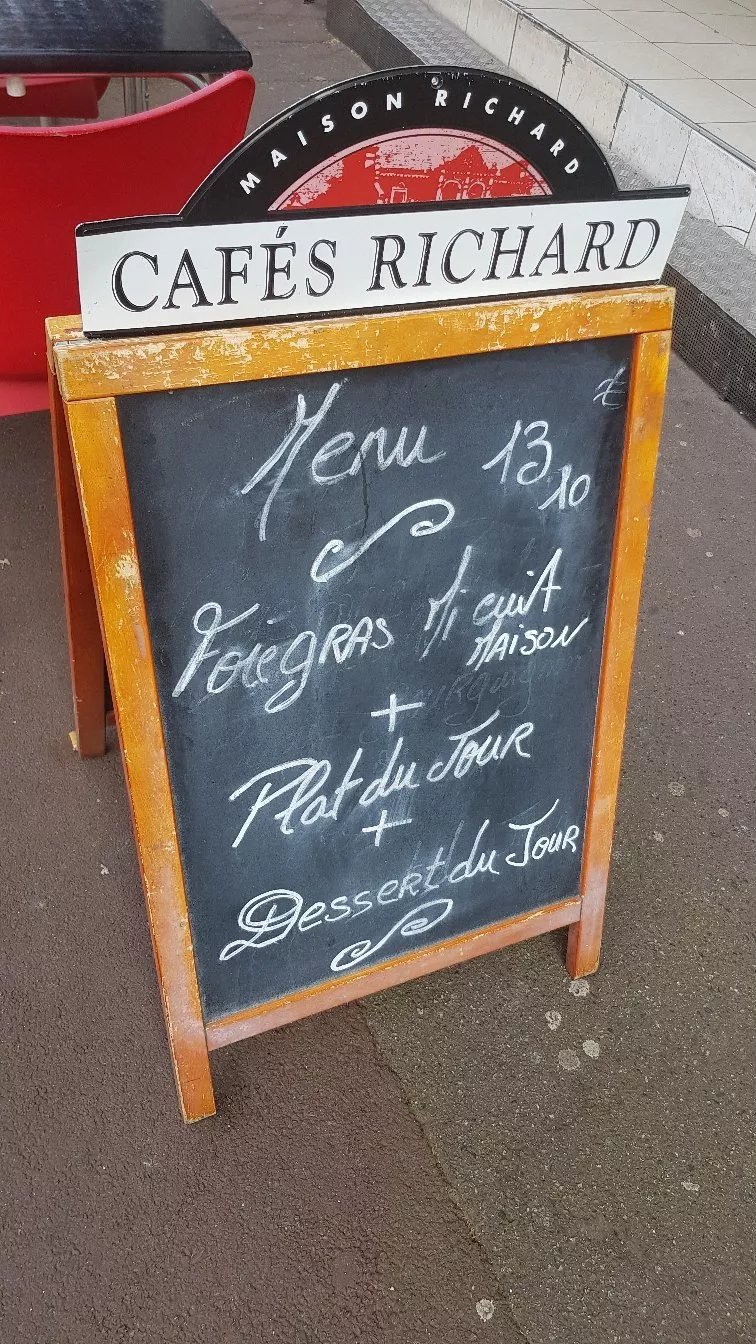 MAISON RICHARD
CAFÉS RICHARD
€
Menu 13,10
Foie GRAS Mi cuiT
MAISON
+
Plat du JOUR
+
Dessert du JOUR